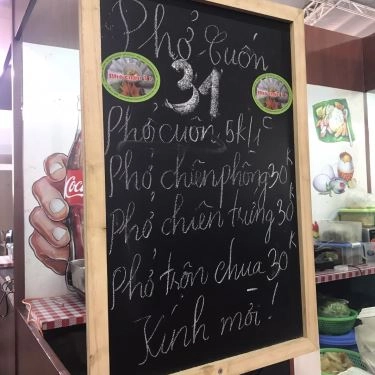 Phở Cuốn
31
Phở cuốn 5k/1c
Phở chiên phồng 30k
Phở chiên trứng 30k
Phở trộn chua 30k
Kính mời!
Coca